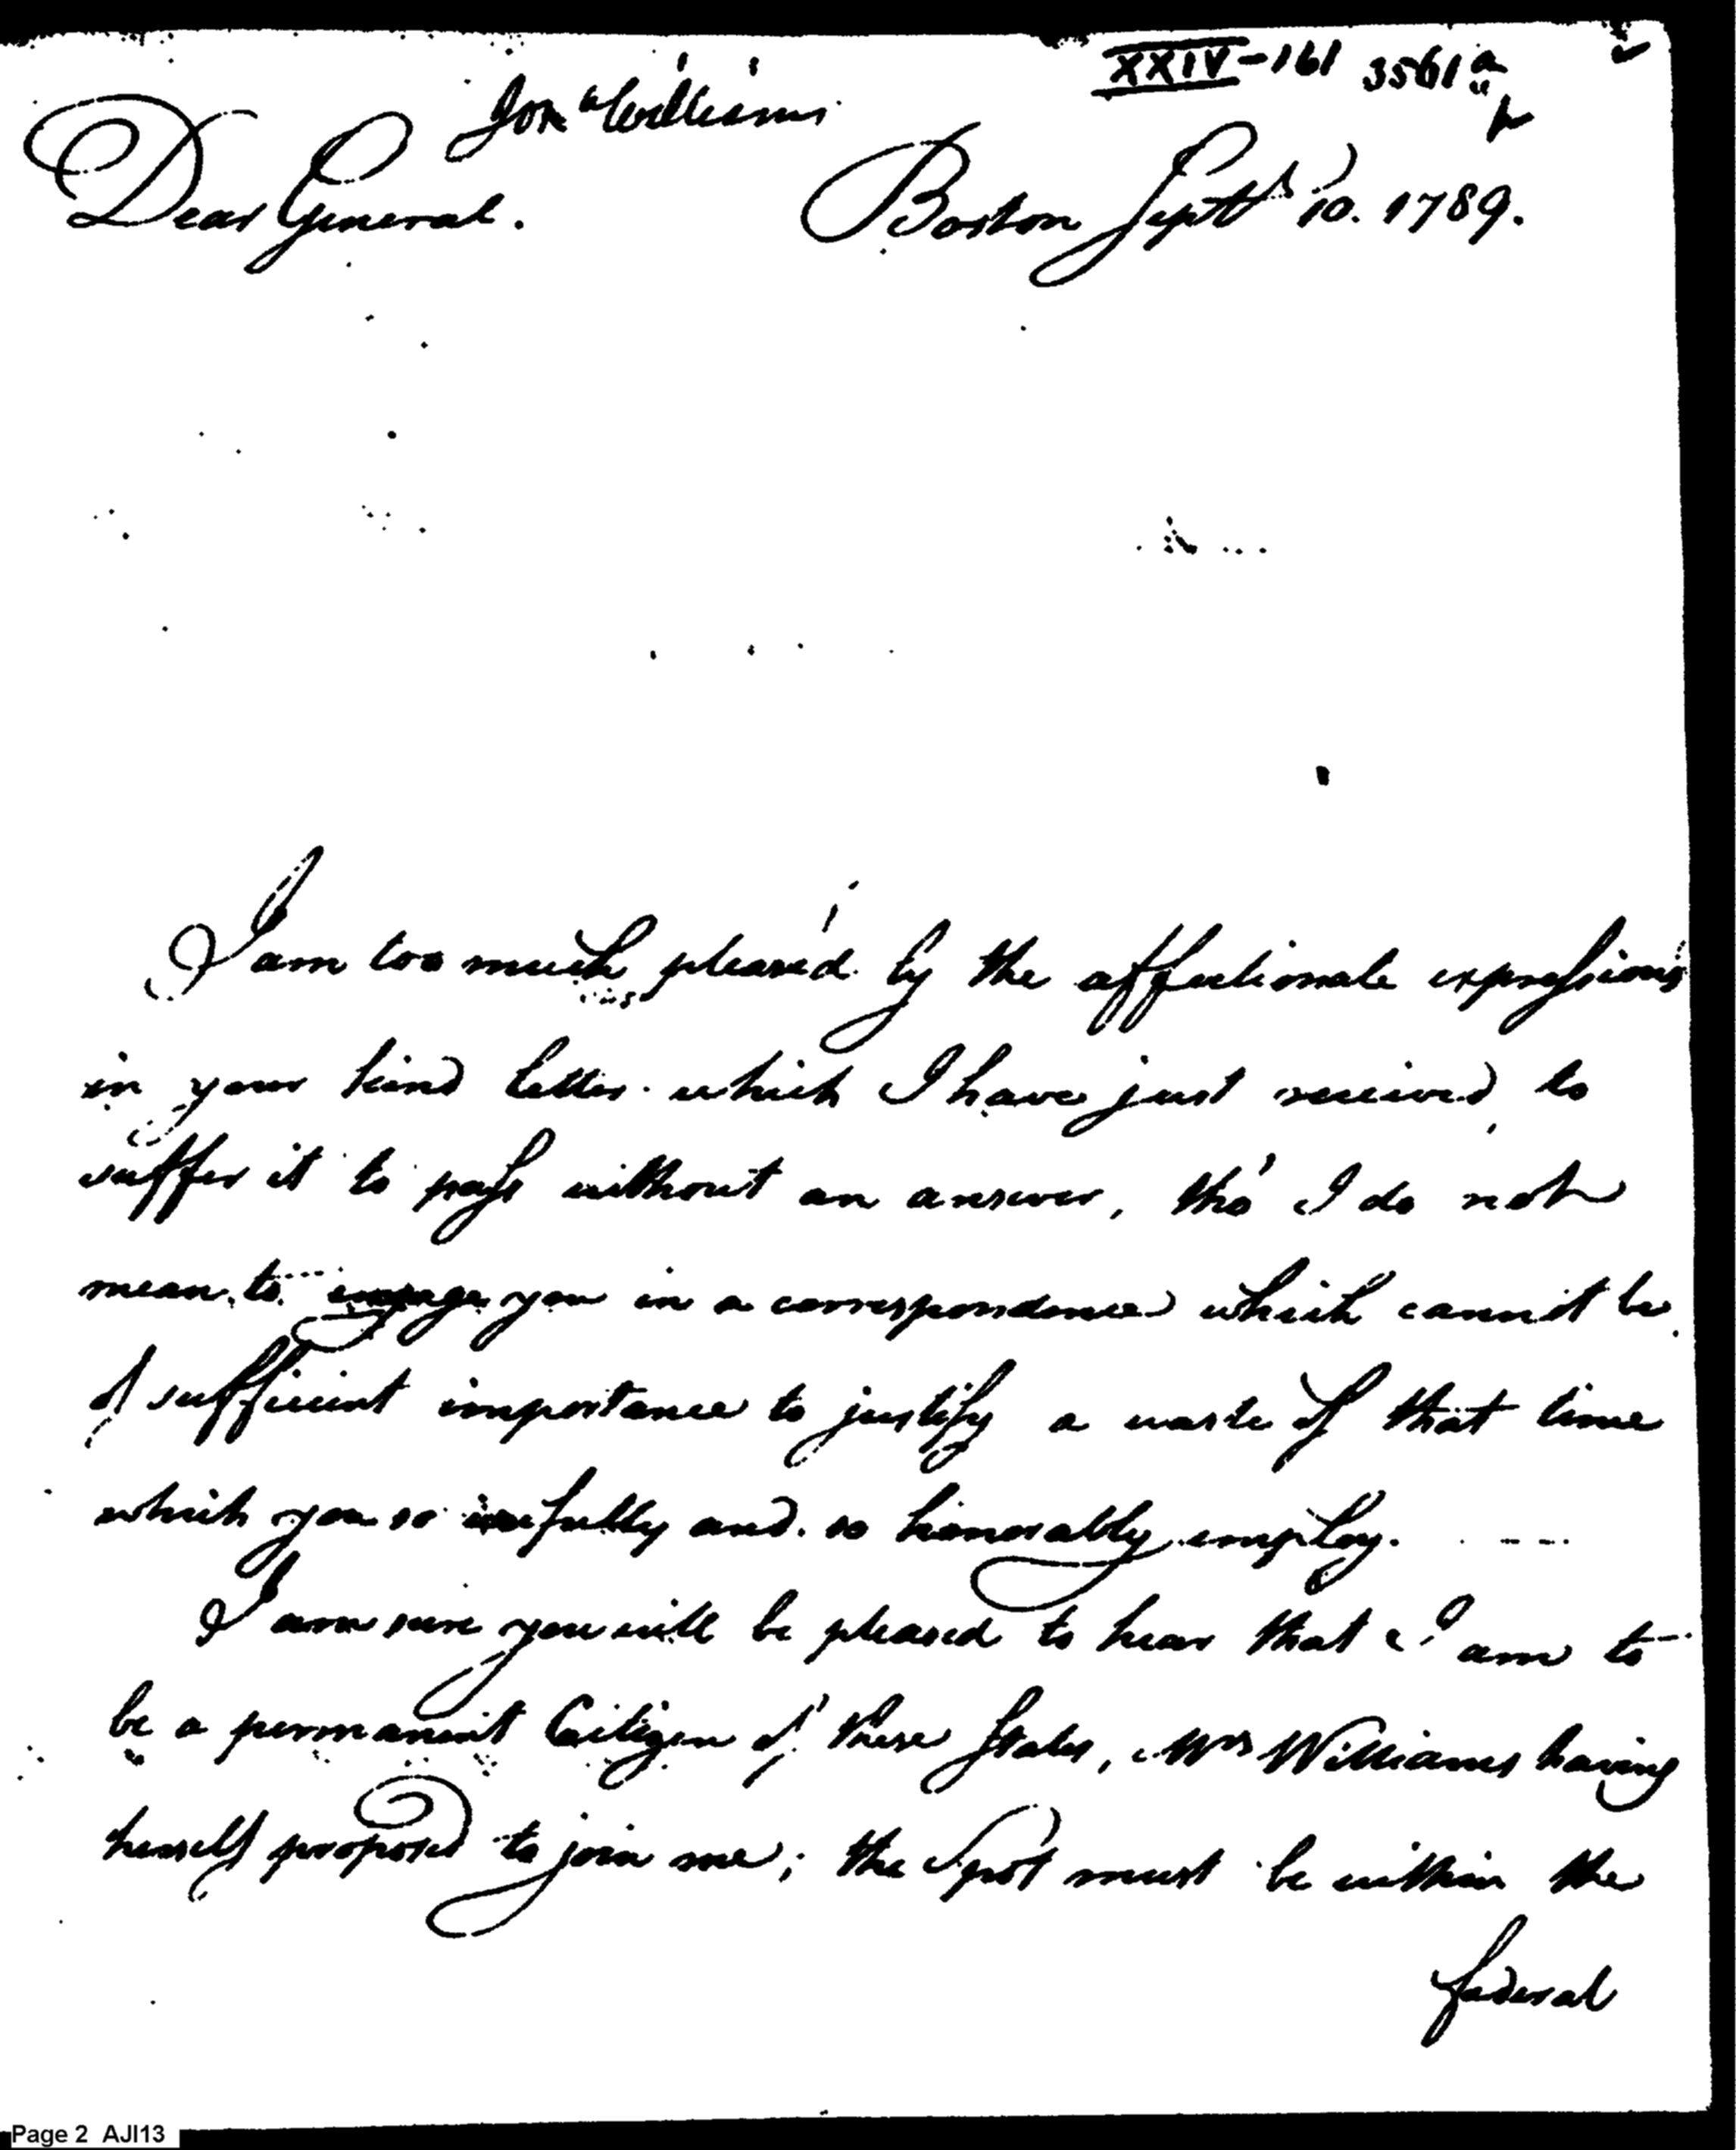 XXIV-161 3561 a
Jon Williams
Dear General. Boston Septr 10. 1789.
I am too much pleas'd by the affectionate expressions
in your kind letter which I have just received to
suffer it to pass without an answer, tho' I do not
mean to engage you in a correspondence which cannot be
of sufficient importance to justify a waste of that time
which you so usefully and so honorably employ.
I am sure you will be pleased to hear that I am to
be a permanent Citizen of these States, Mrs Williams having
herself proposed to join me; the Spot must be within the
federal
Page 2 AJI13